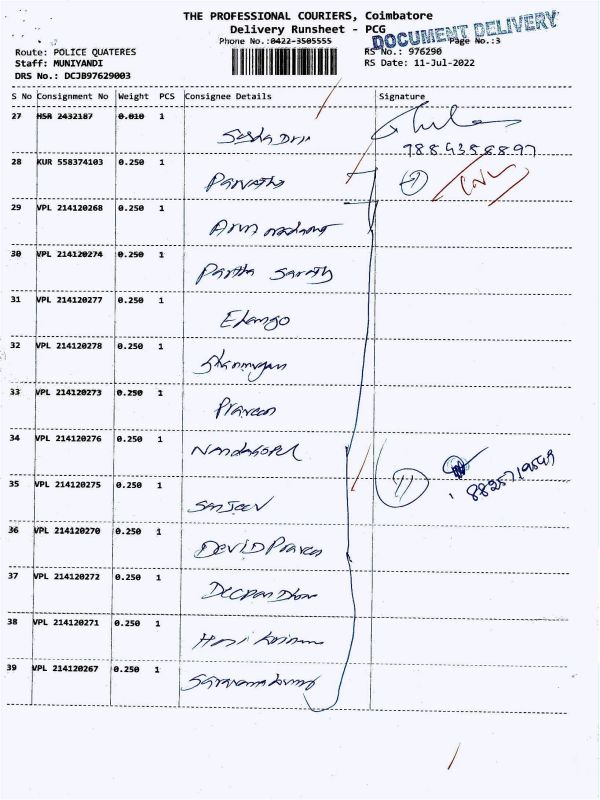 THE PROFESSIONAL COURIERS, Coimbatore
Delivery Runsheet - PCG
DOCUMENT DELIVERY
Phone No.:0422-3505555
Page No.:3
Route: POLICE QUATERES
RS No.: 976290
Staff: MUNIYANDI
RS Date: 11-Jul-2022
DRS No.: DCJB97629003
S No Consignment No Weight PCS Consignee Details Signature
27 HSR 2432187 0.010 1
7884358897
28 KUR 558374103 0.250 1 Parvathi
29 VPL 214120268 0.250 1
30 VPL 214120274 0.250 1 Partha Sarathy
31 VPL 214120277 0.250 1 Elango
32 VPL 214120278 0.250 1 Shanmugam
33 VPL 214120273 0.250 1 Praveen
34 VPL 214120276 0.250 1 Nandagopal
11
35 VPL 214120275 0.250 1 Sanjeev
36 VPL 214120270 0.250 1 Devid Praveen
37 VPL 214120272 0.250 1
38 VPL 214120271 0.250 1
39 VPL 214120267 0.250 1